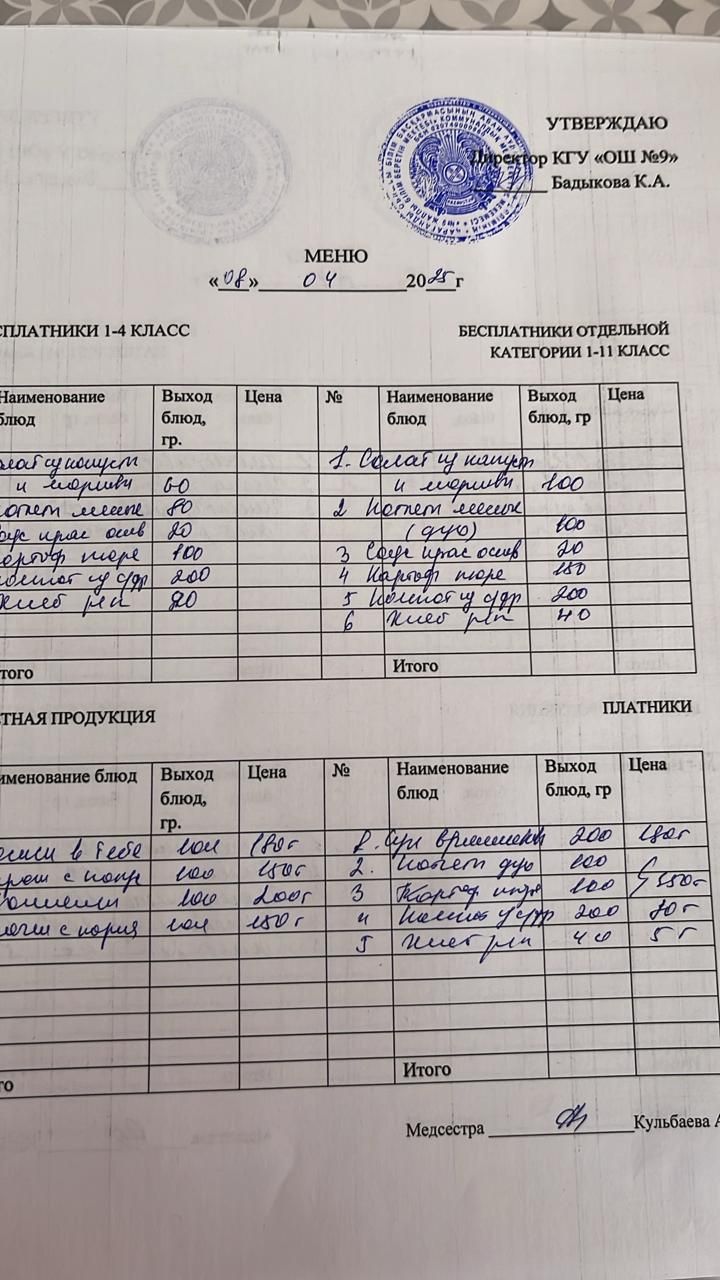 УТВЕРЖДАЮ
Директор КГУ «ОШ №9»
Бадыкова К.А.
МЕНЮ
«08» 04 2025г
СПЛАТНИКИ 1-4 КЛАСС
БЕСПЛАТНИКИ ОТДЕЛЬНОЙ
КАТЕГОРИИ 1-11 КЛАСС
Наименование блюд Выход блюд, гр. Цена № Наименование блюд Выход блюд, гр Цена
лат из капуст 1. Салат из капуст
и моркви 60 и моркви 100
80 2 Котлет
20 (дуо) 100
картоф пюре 100 3 Соус крас основ 20
компот из с/фр 200 4 Картоф пюре 150
хлеб рп 20 5 Компот из с/фр 200
6 хлеб рп 40
того Итого
ТНАЯ ПРОДУКЦИЯ
ПЛАТНИКИ
именование блюд Выход блюд, гр. Цена № Наименование блюд Выход блюд, гр Цена
в тесте 180г 1. Суп 200 180г
100 150г 2. котлет дуо 100
100 200г 3 Картоф пюре 100 350г
150г 4 Компот с/фр 200 80г
5 хлеб рп 40 5г
го Итого
Медсестра Кульбаева А